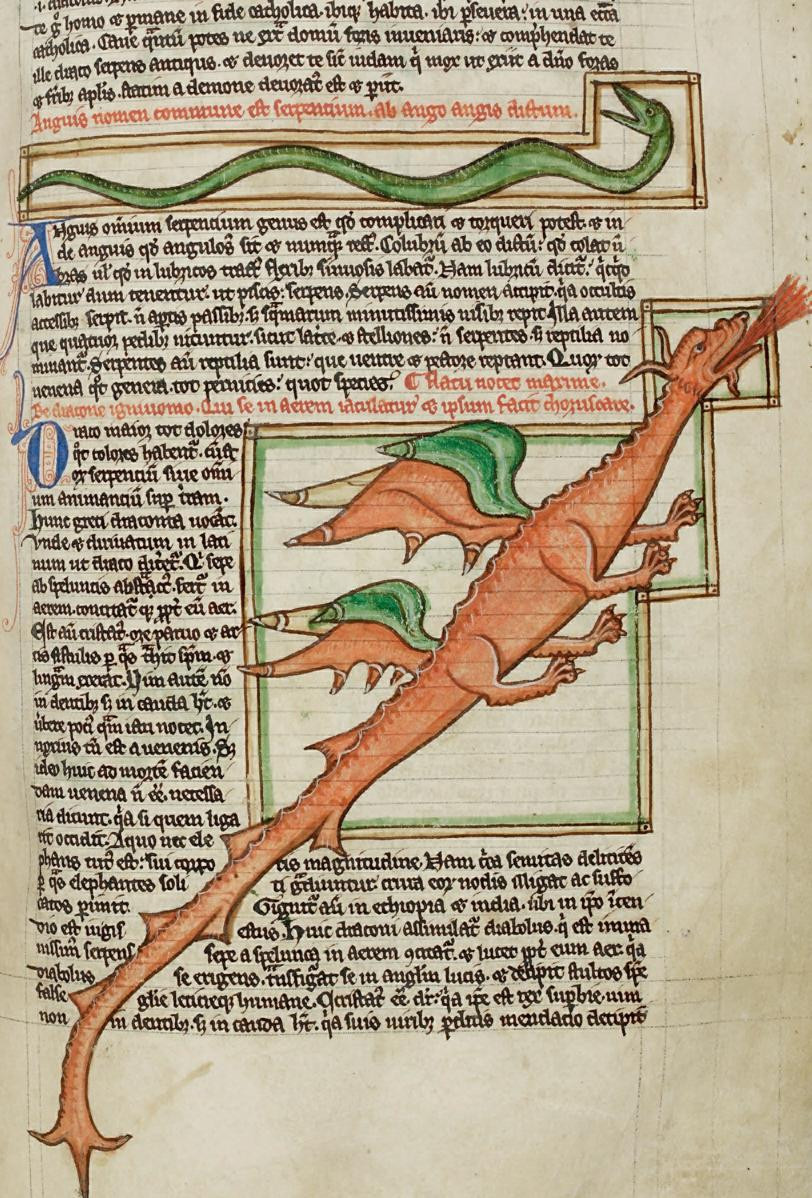 te g̃ homo ⁊ p̱mane in fide catholica. ibiq; habita. ibi p̱seuera. in una ecc̃a
catholica. Caue q̃ntũ potes ne ext̃ domũ foris inueniaris: ⁊ comphendat te
ille draco serpens antiquus. ⁊ deuoret te sic̃ iudam q̇ mox ut exiit a dño foras
⁊ fr̃ib; ap̃lis. statim a demone deuorat̃ est ⁊ p̱iit.
Anguis nomen commune est serpentium. ab ango angis dictum.
Anguis omnium serpentium genus est q̃ complicari ⁊ torqueri potest. ⁊ in
de anguis q̃ angulosus sit ⁊ numq̃ rect̃. Colubrũ ab eo dictũ: q̃ colat ũ
bras ul̃ q̃ in lubricos tract̃ flexib; sinuosis labat̃. Nam lubricũ dicit̃. q̇cq̇d
labitur dum tenentur. ut piscis: serpens. Serpens aũ nomen accipit. q̇a occultis
accessib; serpit. ñ aptis passib; s; sq̃marum minutissimis nisib; repit. Illa autem
que quatuor pedib; nituntur. sicut lacerte ⁊ stelliones: ñ serpentes. s; reptilia no
minant̃. Serpentes aũ reptilia sunt: que uentre ⁊ pectore reptant. Quor̃ tot
uenena q̃t genera. tot pernicies: quot species. flatu nocet maxime.
De dracone igniuomo. Qui se in aerem iaculatur ⁊ ipsum facit choruscare.
Draco maior tot dolores
q̃t colores habent̃. cũct
or̃ serpentiũ siue om̃i
um animantiũ sup̱ t̃ram.
Hunc greci draconta uocãt.
Vnde ⁊ diriuatum in lati
num ut draco diceret̃. Q̇ sepe
ab speluncis abstract̃. fert̃ in
aerem. concitat̃ q; pp̃t eũ aer.
Est aũ cristat̃. ore paruo ⁊ ar
tis fistulis p̱ q̃s t̃hit sp̃m. ⁊
linguã exerat. Vim autẽ no
in dentib; s; in cauda h̃t. ⁊
ũbere poci̾ q̃m ictu nocet. In
noxius tñ est a uenenis. S;
ideo huic ad mortẽ facien
dam uenena ñ ẽẽ. necessa
ria dicunt. q̇a si quem liga
rit occidit. A quo nec ele
phans tut̃ est: sui corpo
ris magnitudine. Nam c̃ca semitas delitẽs
p̱ q̃s elephantes soli
ti g̃diuntur. crura eor̃ nodis illigat ac suffo
catos p̱imit.
Gignit̃ aũ in ethiopia ⁊ india. ubi in ip̃o ĩcen
dio est iugis
estus. Huic draconi assimilat̃ diabolus. q̇ est imma
nissim̃ serpens.
sepe a spelunca in aerem ꝯcitat̃. ⁊ lucet pp̃t eum aer. q̇a
diabolus
se erigens. t̃nsfigurat se in anglm lucis. ⁊ decipit stultos spe
false
glie leticieq; humane. Cristat̃ ẽẽ dr̃: q̇a ip̃e est rex sup̱bie. uim
non
in dentib; s; in cauda h̃t. q̇a suis uirib; p̱ditis mendacio decipit